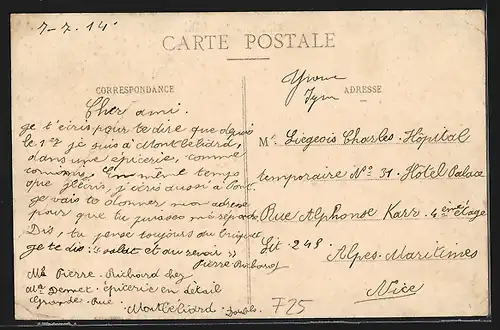 7-7.14.
CARTE POSTALE
CORRESPONDANCE
Cher ami.
Je t'écris pour te dire que depuis
le 1er je suis à Montbéliard,
dans une épicerie, comme
commis, En même temps
que j'écris, j'écris aussi à
je vais te donner mon adresse
pour que tu puisses
Dis, tu pense toujours du briquet
je te dis : « salut et au revoir »
Pierre Richard
Mr Pierre Richard chez
Ma Demet épicerie en détail
Grande Rue
Montbéliard Doubs
Yvonne
ADRESSE
Mr Liégeois Charles. Hôpital
temporaire No 31. Hôtel Palace
Rue Alphonse Karr. 4ème étage
Lit. 248. Alpes-Maritimes
Nice
F25